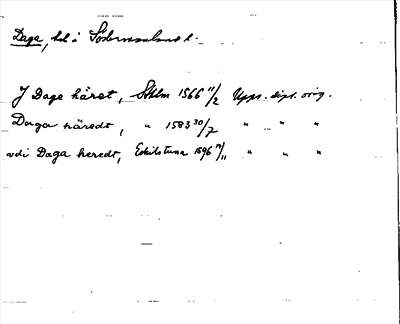 Daga, hd i Södermanland l.
J Dage häret, Sthlm 1566 11/2 Upps. dipl. orig.
Daga häredt, " 1583 30/7 " " "
vdi Daga heredt, Eskilstuna 1596 /11 " " "